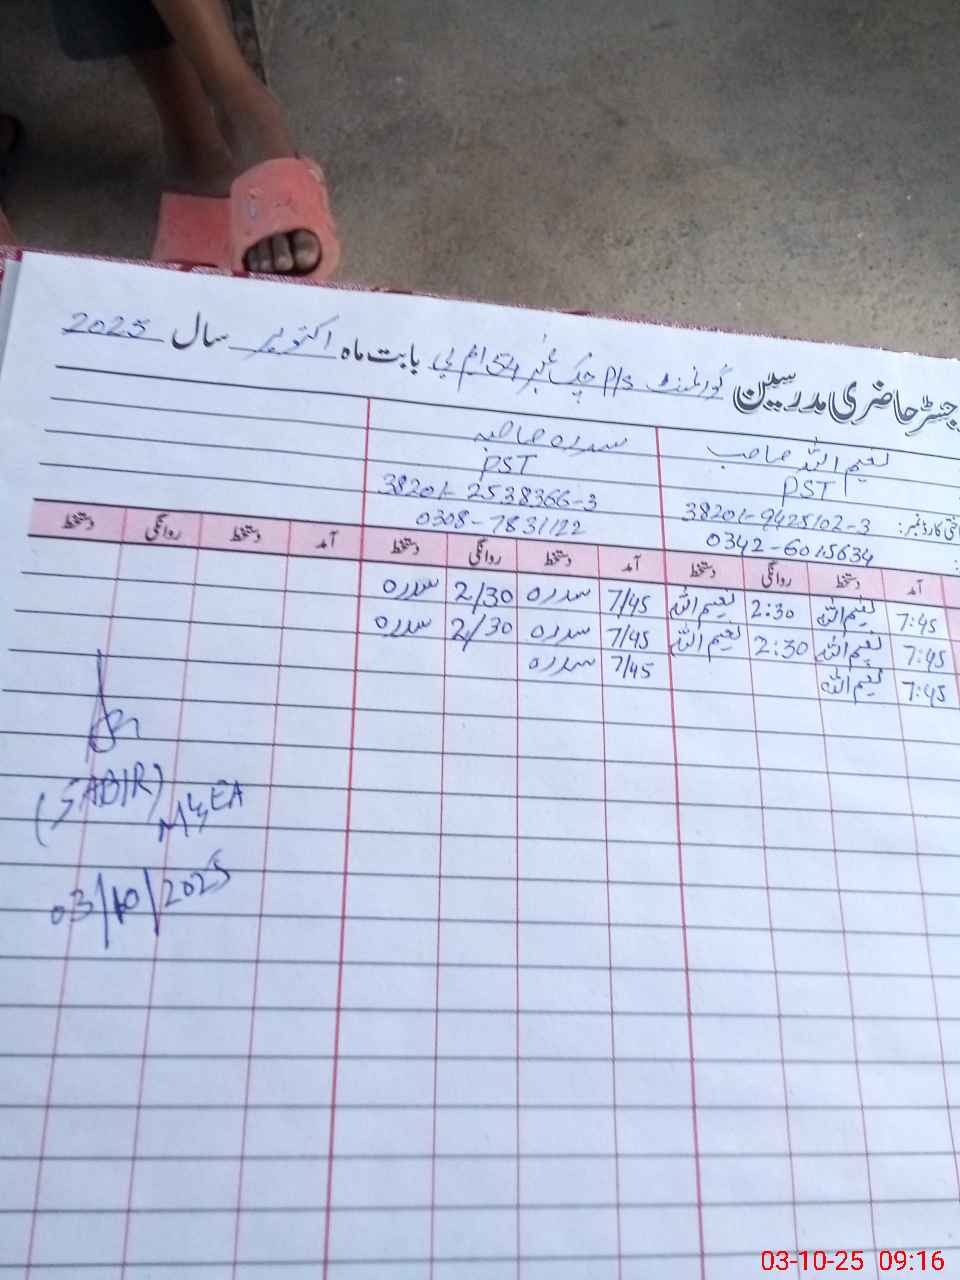 رجسٹر حاضری مدرسین گورنمنٹ P/S چک نمبر 54 ام بی بابت ماہ اکتوبر سال 2025
نعیم اللہ صاحب سدرہ صاحبہ
PST PST
38201-9425102-3 38201-2538366-3
0342-6015634 0308-7831122
آمد دستخط روانگی دستخط آمد دستخط روانگی دستخط آمد دستخط روانگی دستخط
7:45 نعیم اللہ 2:30 نعیم اللہ 7/45 سدرہ 2/30 سدرہ
7:45 نعیم اللہ 2:30 نعیم اللہ 7/45 سدرہ 2/30 سدرہ
7:45 نعیم اللہ 7/45 سدرہ
(SABIR)
MEA
03/10/2025
03-10-25 09:16